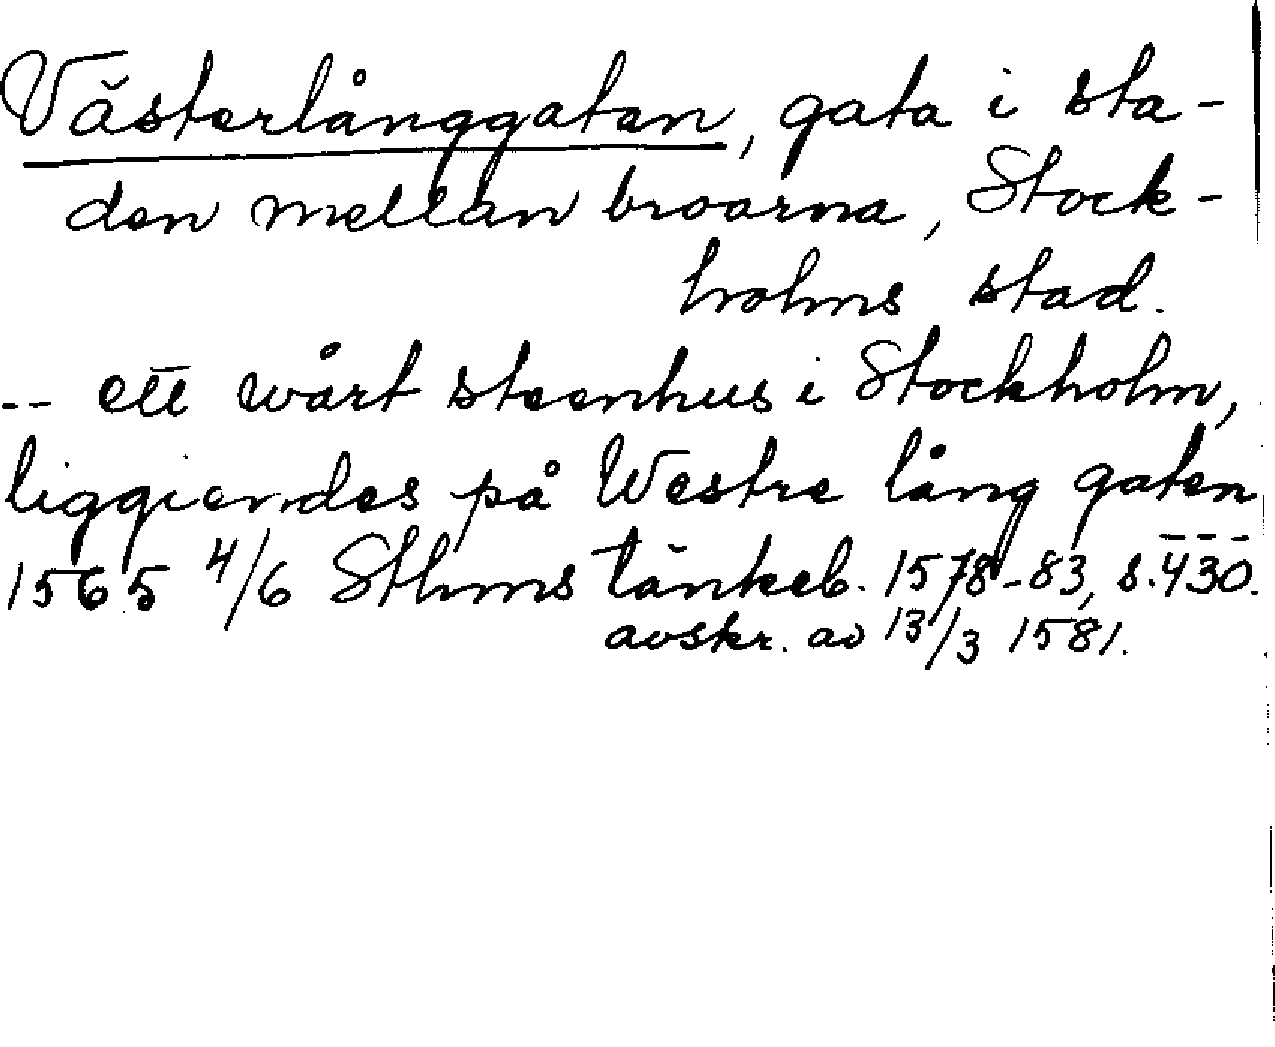 Västerlånggatan, gata i sta-
den mellan broarna, Stock-
holms stad.
-- ett wårt steenhus i Stockholm,
liggiendes på Westre lång gaten
---
1565 4/6 Sthms tänkeb. 1578-83, s. 430.
avskr. av 13/3 1581.